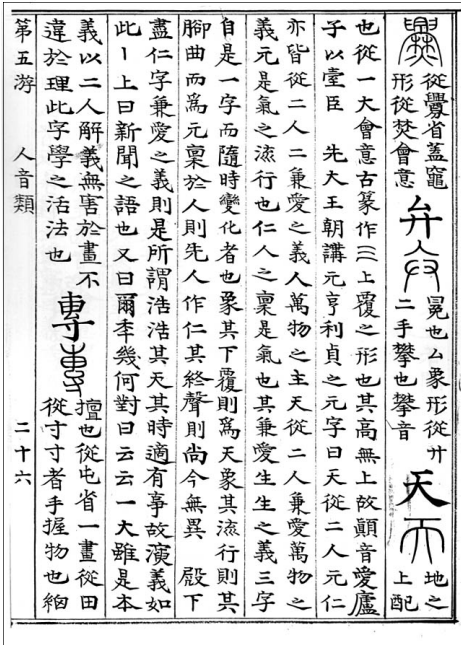 爨
從釁省蓋竈
形從焚會意
弁
冕也厶象形從廾
二手攀也攀音
天
地之
上配
也從一大會意古篆作 上覆之形也其高無上故顛音愛廬
子以臺臣　先大王朝講元亨利貞之元字曰天從二人元仁
亦皆從二人二兼愛之義人萬物之主天從二人兼愛萬物之
義元是氣之流行也仁人之稟是氣也其兼愛生生之義三字
自是一字而隨時變化者也象其下覆則爲天象其流行則其
腳曲而爲元稟於人則先人作仁其終聲則尚今無異　殿下
盡仁字兼愛之義則是所謂浩浩其天其時適有事故演義如
此丨上曰新聞之語也又曰爾李幾何對曰云云一大雖是本
義以二人解義無害於畫不
違於理此字學之活法也
專
擅也從屯省一畫從田
從寸寸者手握物也
第五游　人音類　二十六